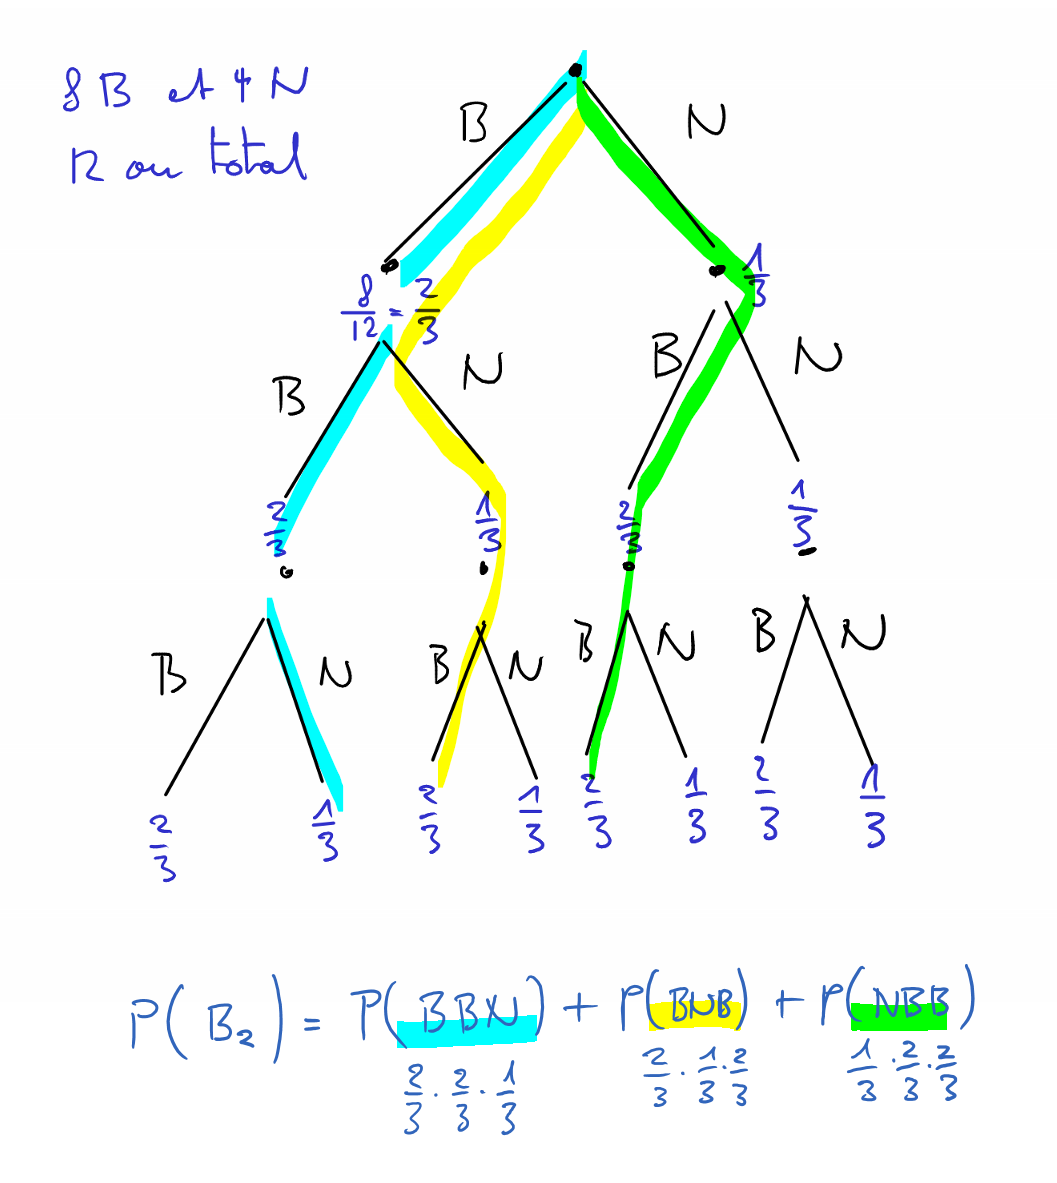 8 B et 4 N
12 au total
B N
8/12 = 2/3 1/3
B N B N
2/3 1/3 2/3 1/3
B N B N B N B N
2/3 1/3 2/3 1/3 2/3 1/3 2/3 1/3
P(B₂) = P(BBN) + P(BNB) + P(NBB)
2/3 · 2/3 · 1/3 2/3 · 1/3 · 2/3 1/3 · 2/3 · 2/3